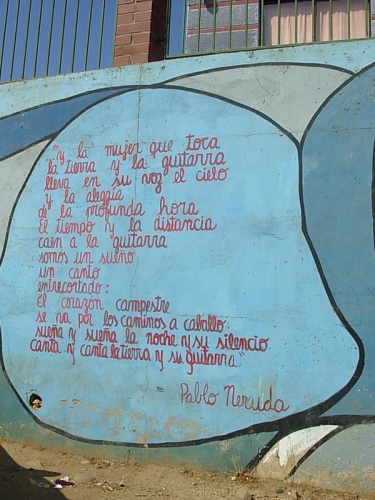 "y la mujer que toca
la tierra y la guitarra
lleva en su voz el cielo
y la alegria
de la profunda hora
El tiempo y la distancia
caen a la guitarra
somos un sueño
un canto
entrecortado:
El corazón campestre
se va por los caminos a caballo:
sueña y sueña la noche y su silencio
canta y canta la tierra y su guitarra"
Pablo Neruda